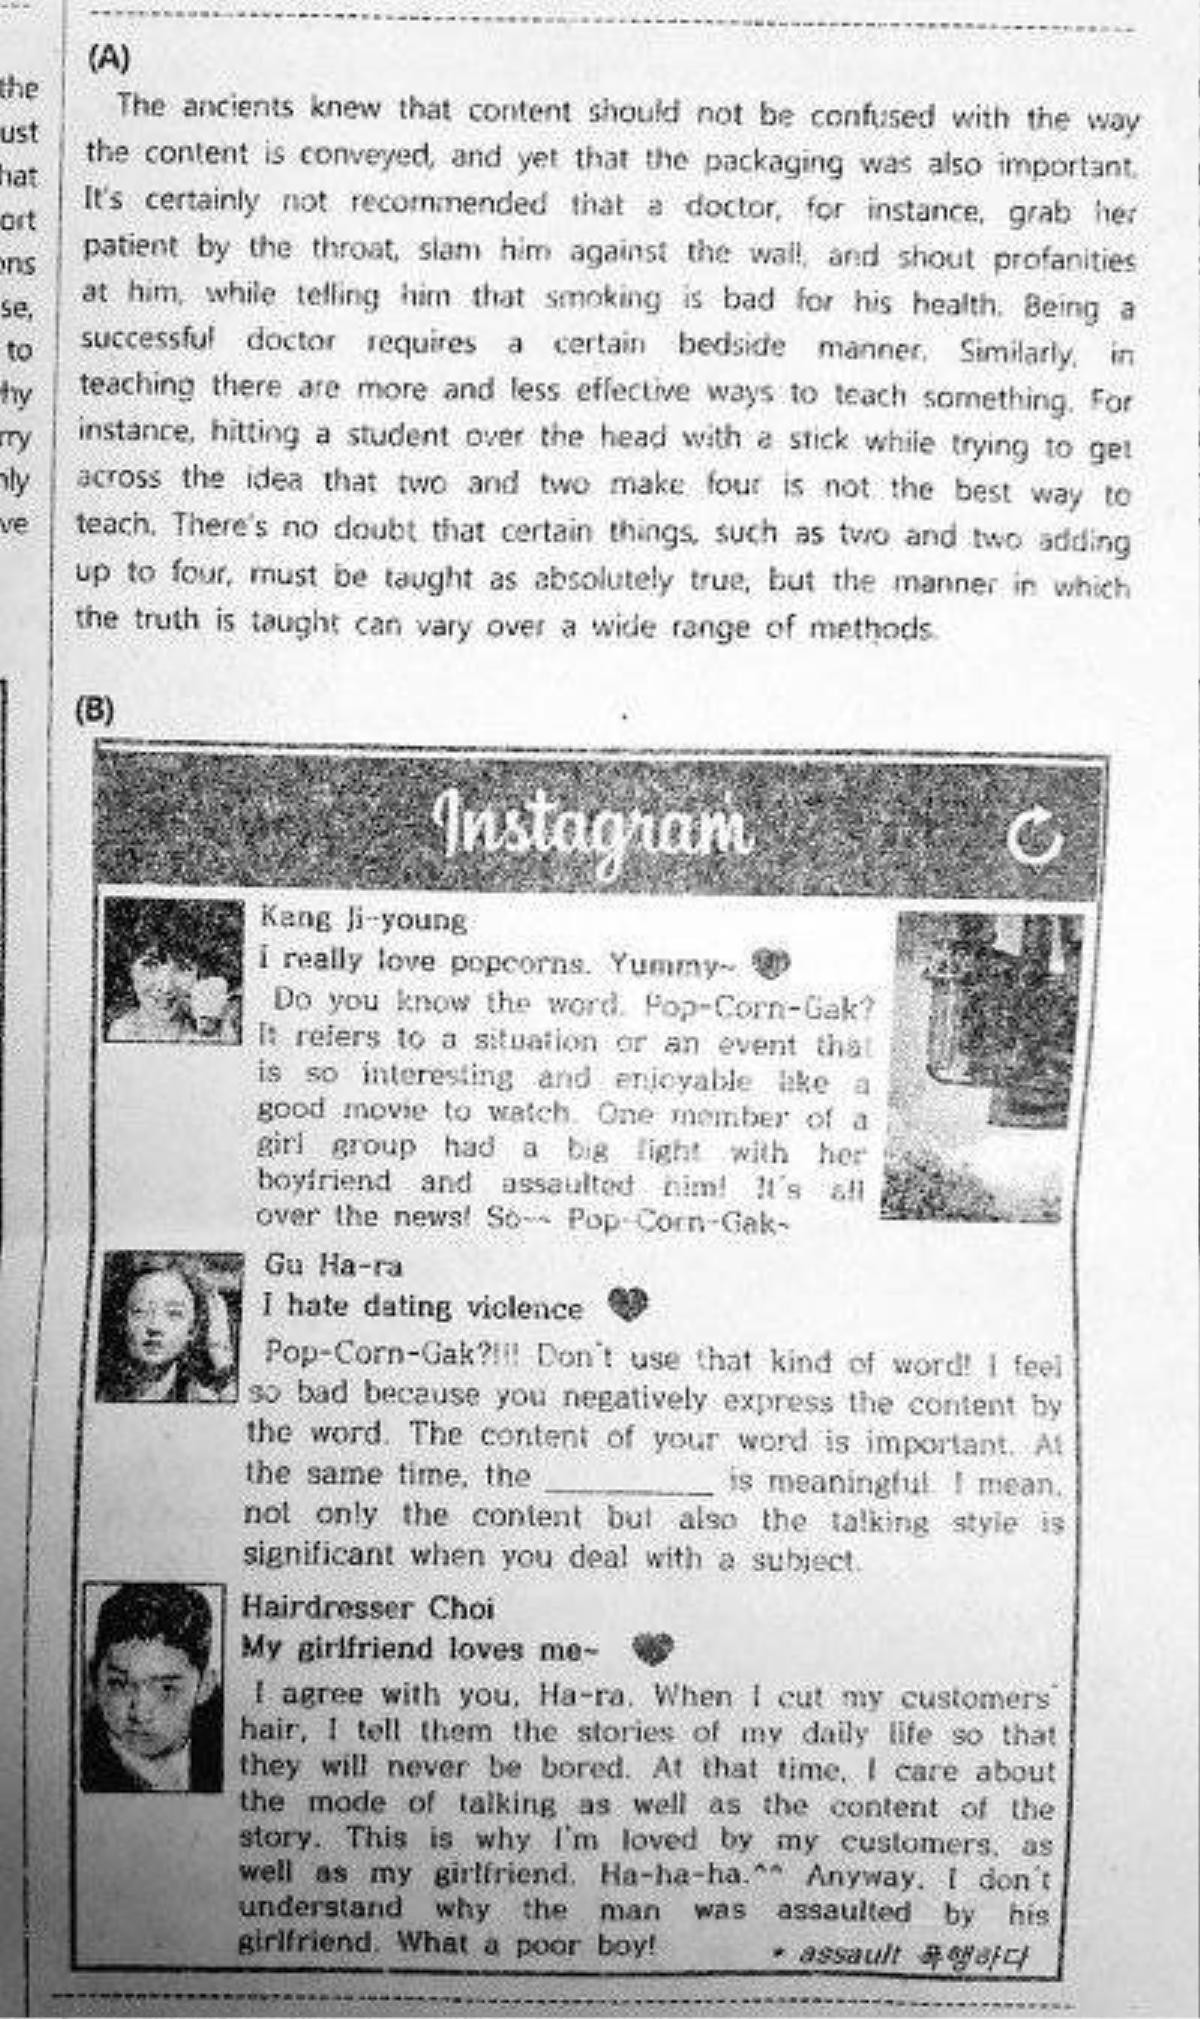 the
ust
hat
ort
ons
se,
to
hy
rry
nly
ve
(A)
The ancients knew that content should not be confused with the way
the content is conveyed, and yet that the packaging was also important.
It's certainly not recommended that a doctor, for instance, grab her
patient by the throat, slam him against the wall, and shout profanities
at him, while telling him that smoking is bad for his health. Being a
successful doctor requires a certain bedside manner. Similarly, in
teaching there are more and less effective ways to teach something. For
instance, hitting a student over the head with a stick while trying to get
across the idea that two and two make four is not the best way to
teach. There's no doubt that certain things, such as two and two adding
up to four, must be taught as absolutely true, but the manner in which
the truth is taught can vary over a wide range of methods.
(B)
Instagram
Kang Ji-young
I really love popcorns. Yummy~
Do you know the word. Pop-Corn-Gak?
It refers to a situation or an event that
is so interesting and enjoyable like a
good movie to watch. One member of a
girl group had a big fight with her
boyfriend and assaulted him! It's all
over the news! So~~ Pop-Corn-Gak~
Gu Ha-ra
I hate dating violence
Pop-Corn-Gak?!!! Don't use that kind of word! I feel
so bad because you negatively express the content by
the word. The content of your word is important. At
the same time, the __________ is meaningful. I mean,
not only the content but also the talking style is
significant when you deal with a subject.
Hairdresser Choi
My girlfriend loves me~
I agree with you, Ha-ra. When I cut my customers'
hair, I tell them the stories of my daily life so that
they will never be bored. At that time, I care about
the mode of talking as well as the content of the
story. This is why I'm loved by my customers, as
well as my girlfriend. Ha-ha-ha.^^ Anyway, I don't
understand why the man was assaulted by his
girlfriend. What a poor boy!
* assault 폭행하다